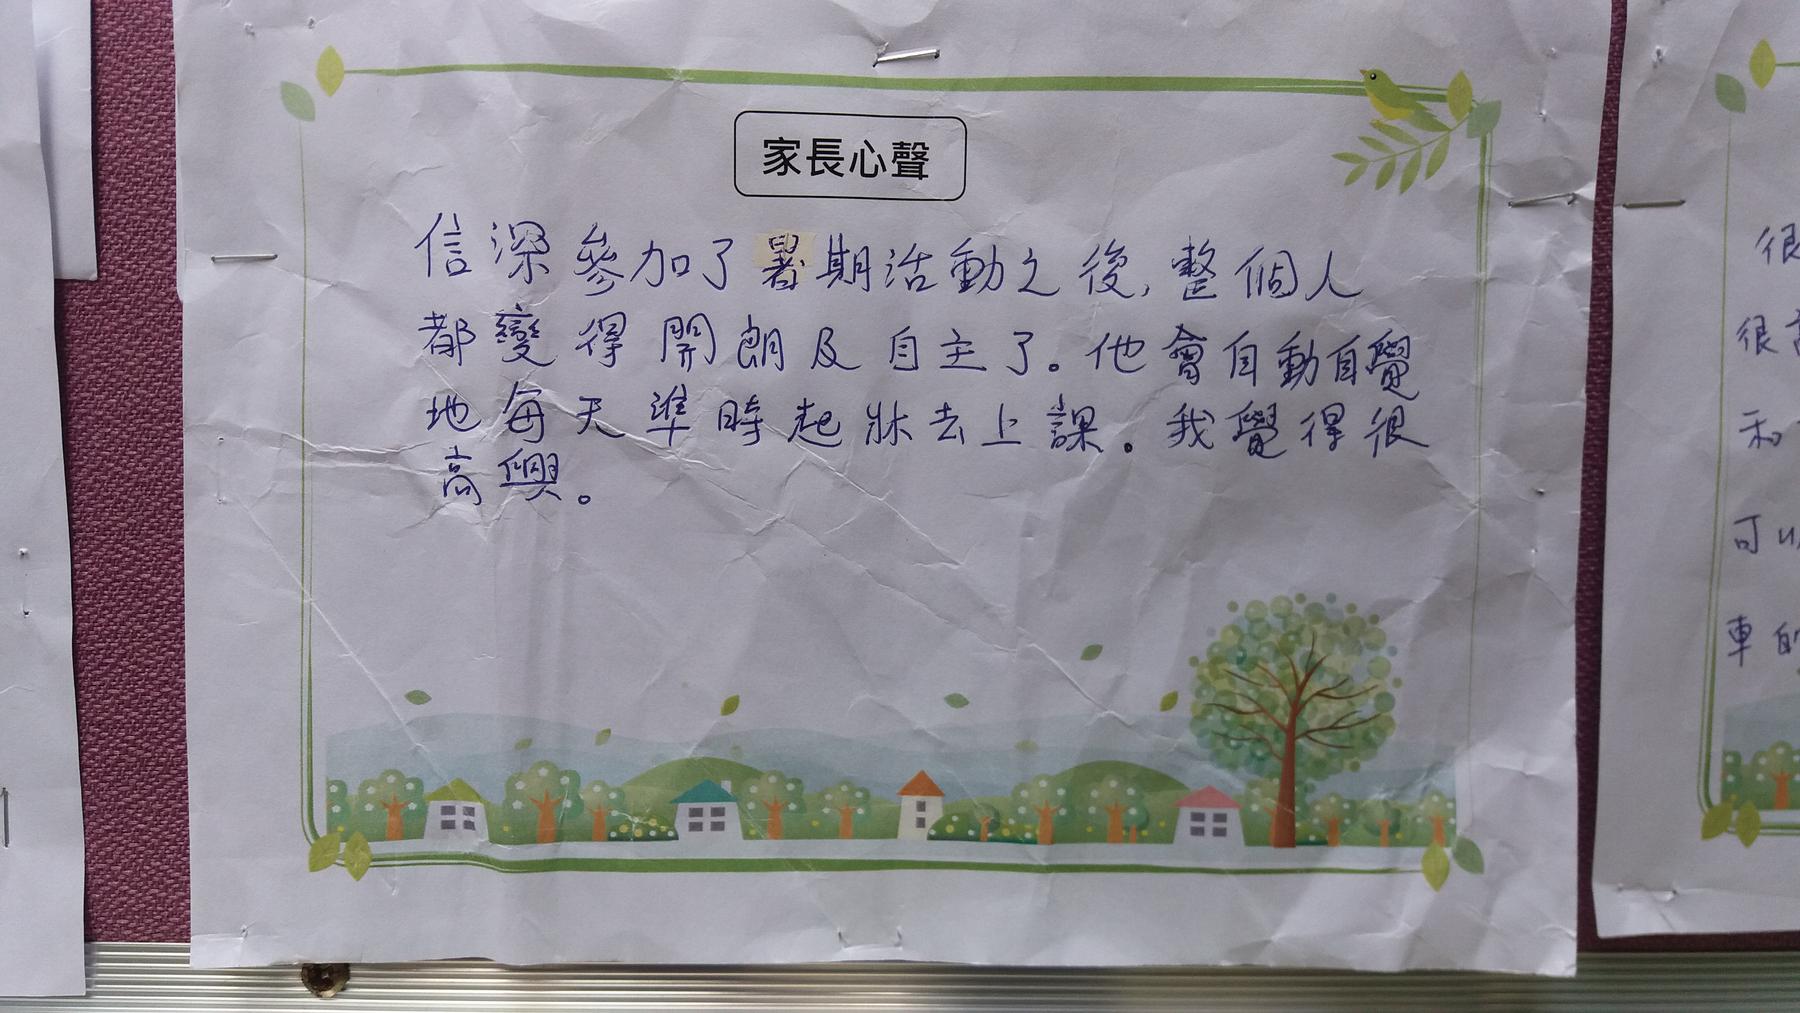 家長心聲
信深參加了暑期活動之後,整個人
都變得開朗及自主了。他會自動自覺
地每天準時起牀去上課。我覺得很
高興。
很
很高
和
可以
車的